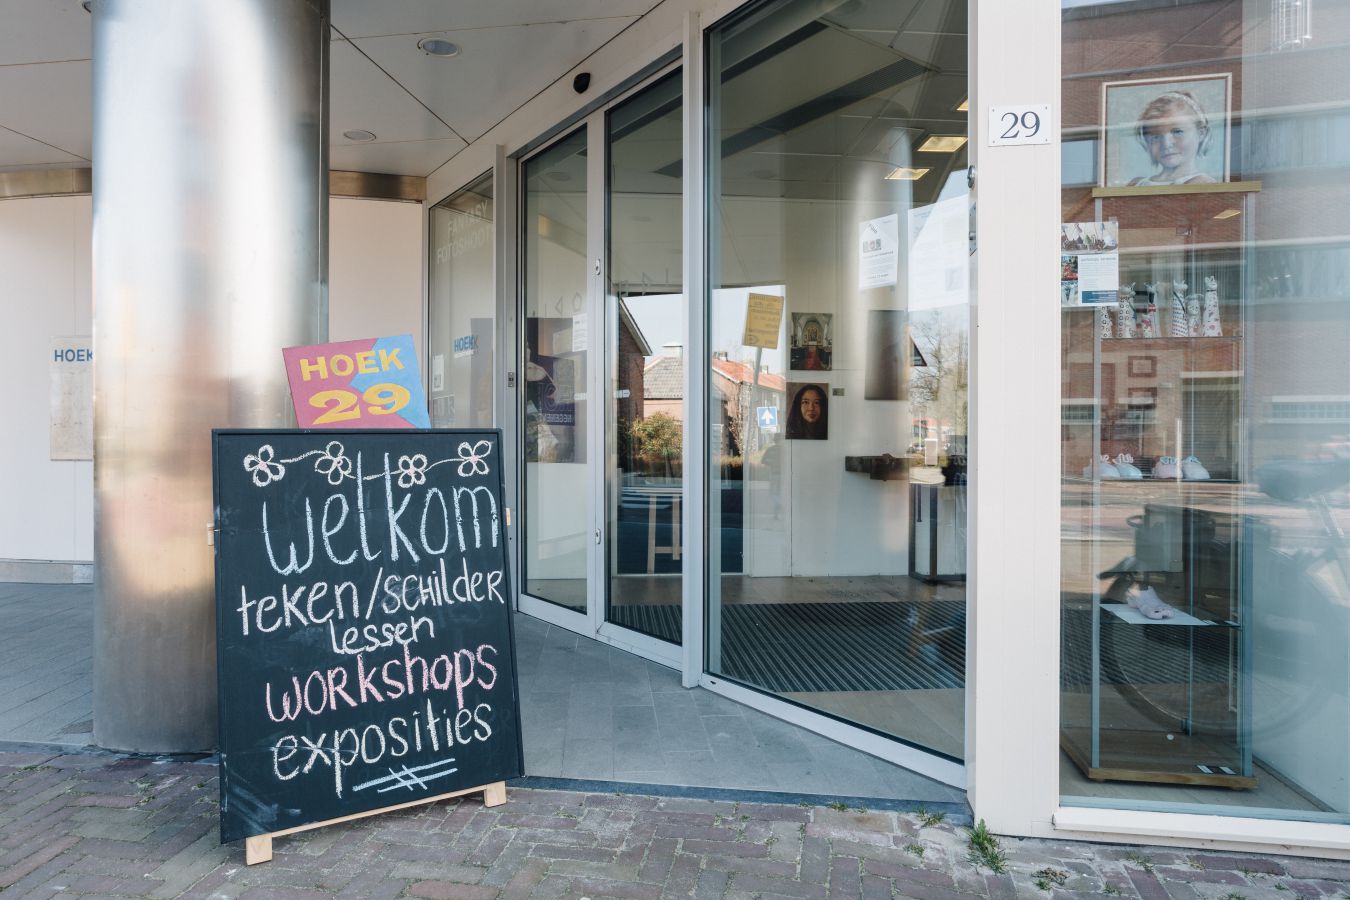 HOEK
HOEK
29
welkom
teken/SCHILDER
lessen
workshops
exposities
FANTASY
FOTOSHOOTS
HOEK
29